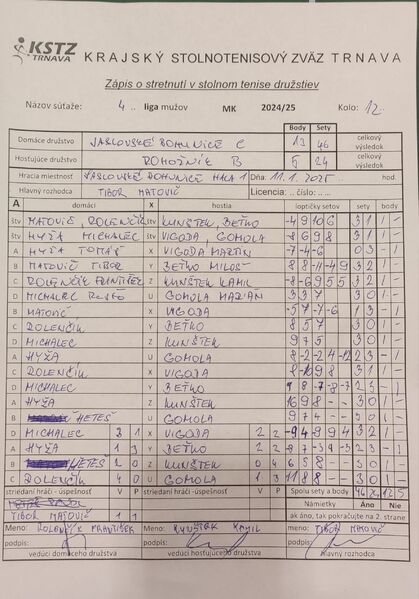 KSTZ
TRNAVA
KRAJSKÝ STOLNOTENISOVÝ ZVÄZ TRNAVA
Zápis o stretnutí v stolnom tenise družstiev
Názov súťaže: 4.. liga mužov MK 2024/25 Kolo: 12..
Body Sety
Domáce družstvo JASLOVSKÉ BOHUNICE C 13 46 celkový výsledok
Hosťujúce družstvo ROHOŽNÍK B 5 24 celkový výsledok
Hracia miestnosť JASLOVSKÉ BOHUNICE HALA 1 Dňa: 11.1.2025 hod.
Hlavný rozhodca TIBOR MATOVIČ Licencia: .. číslo: ..
A domáci X hostia loptičky setov sety body
štv MATOVIČ, ROLENČÍK štv KUNŠTEK, BEŤKO -4 9 10 6 3 1 1 -
štv HYŽA MICHALEC štv VIGODA, GOMOLA 8 -6 9 8 3 1 1 -
A HYŽA TOMÁŠ X VIGODA MARTIN -7 -4 -6 0 3 - 1
B MATOVIČ TIBOR Y BEŤKO MILOŠ 8 8 -11 -4 9 3 2 1 -
C ROLENČÍK FRANTIŠEK Z KUNŠTEK KAMIL 8 -6 9 5 5 3 2 1 -
D MICHALEC U GOMOLA MARIÁN 3 3 7 3 0 1 -
B MATOVIČ X VIGODA -5 7 -7 -6 1 3 - 1
C ROLENČÍK Y BEŤKO 8 5 7 3 0 1 -
D MICHALEC Z KUNŠTEK 9 7 5 3 0 1 -
A HYŽA U GOMOLA 8 -2 2 -4 -12 2 3 - 1
C ROLENČÍK X VIGODA 8 -10 9 8 3 1 1 -
D MICHALEC Y BEŤKO 9 8 -7 -8 -7 2 3 - 1
A HYŽA Z KUNŠTEK 10 9 8 3 0 1 -
HETEŠ U GOMOLA 9 7 4 3 0 1 -
D MICHALEC 3 1 X VIGODA 2 2 -9 4 -9 9 4 3 2 1 -
A HYŽA 1 3 Y BEŤKO 2 2 2 3 - 1
HETEŠ 2 0 Z KUNŠTEK 0 4 6 5 8 3 0 1 -
C ROLENČÍK 4 0 U GOMOLA 1 3 11 8 8 3 0 1 -
striedaní hráči - úspešnosť V P striedaní hráči - úspešnosť V P Spolu sety a body 46 24 12 5
Námietky Áno Nie
TIBOR MATOVIČ 1 1 ak áno, tak pokračujte na 2. strane
Meno: ROLENČÍK FRANTIŠEK Meno: KUNŠTEK KAMIL Meno: TIBOR MATOVIČ
podpis: podpis: podpis:
vedúci domáceho družstva vedúci hosťujúceho družstva hlavný rozhodca